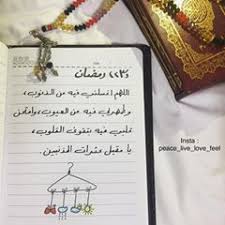 ٢٣ رمضان
اللهم اغسلني فيه من الذنوب،
وطهرني فيه من العيوب، وامتحن
قلبي فيه بتقوى القلوب،
يا مقيل عثرات المذنبين
Insta :
peace_live_love_feel